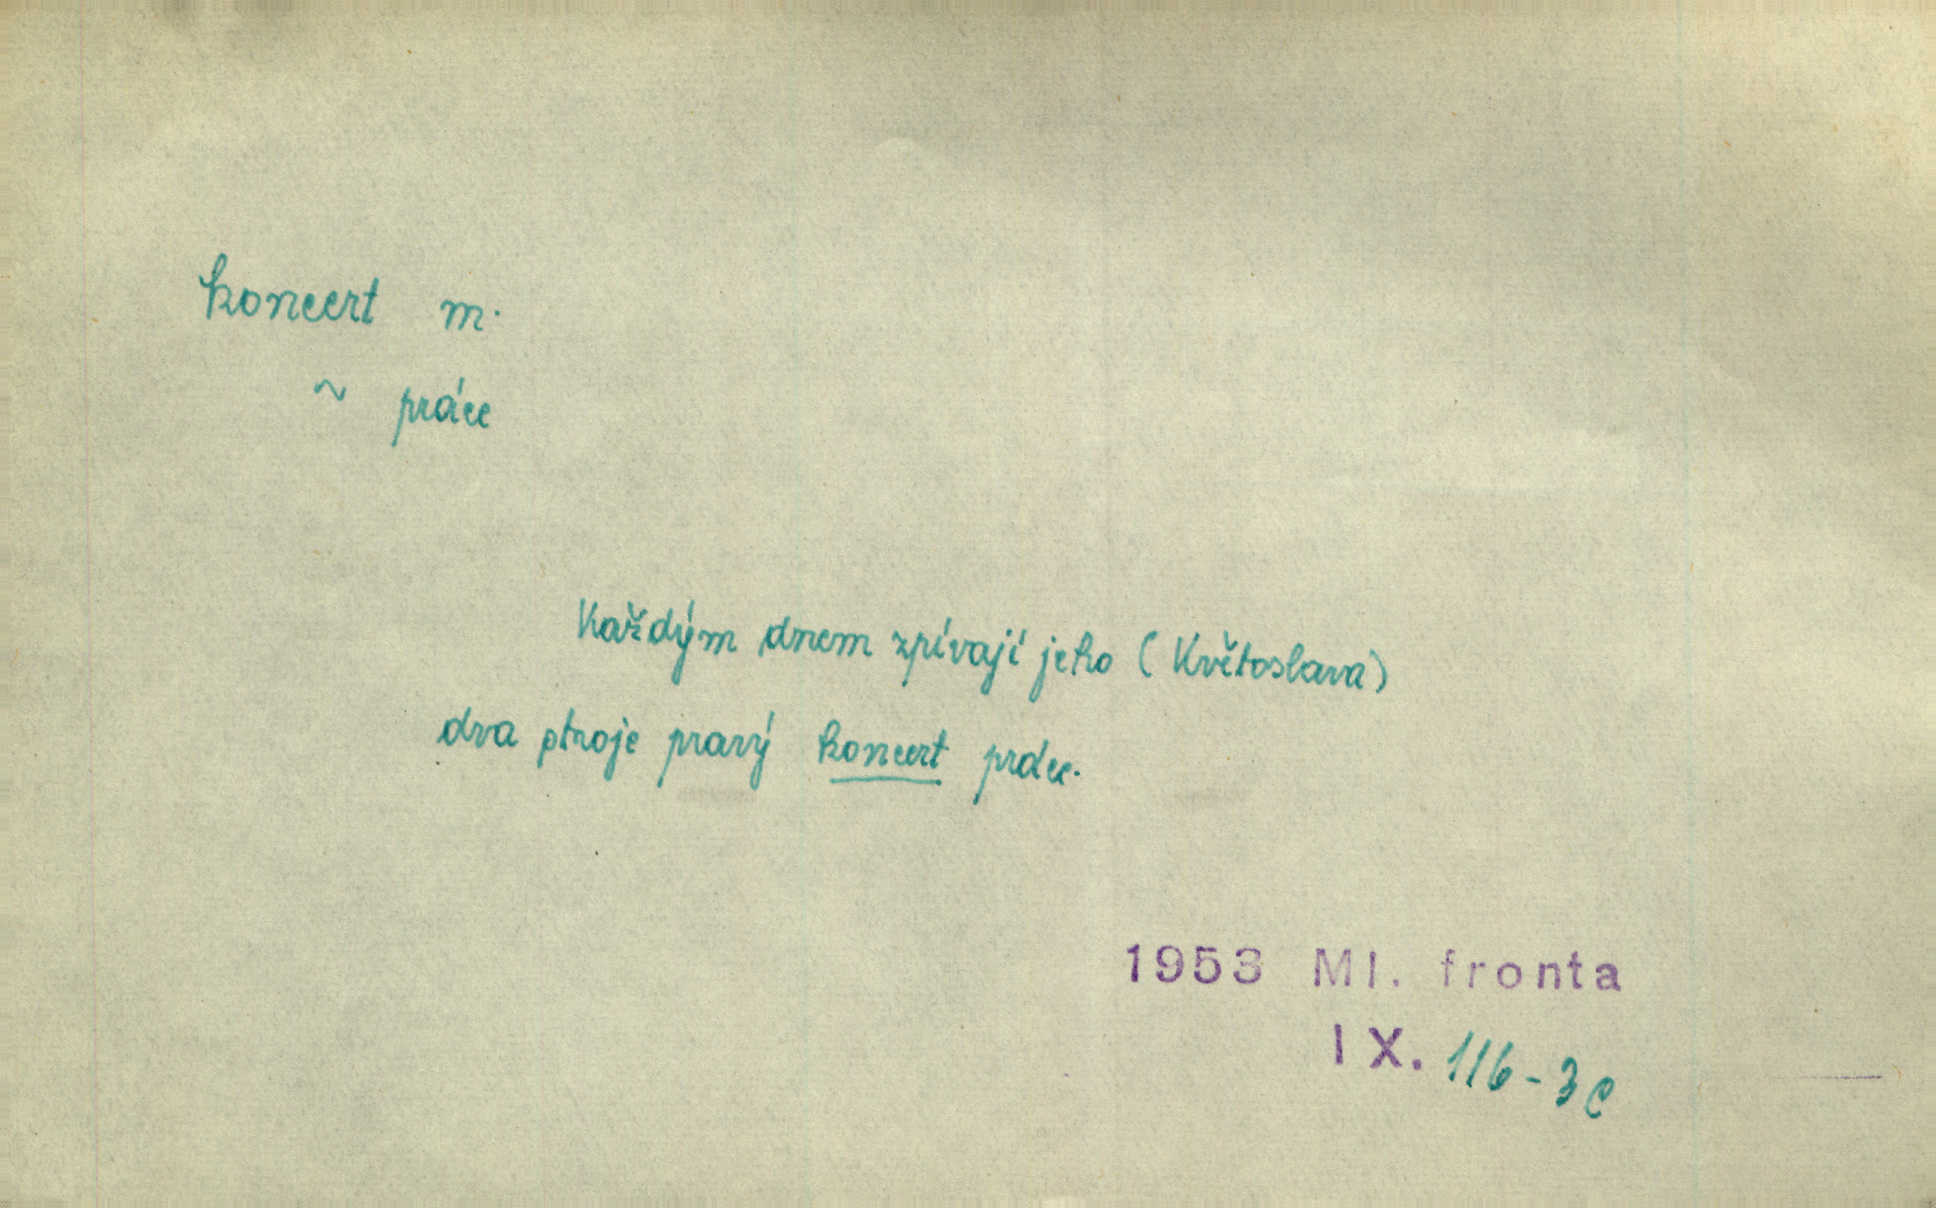 koncert m.
~ práce
Každým dnem zpívají jeho (Květoslava)
dva stroje pravý koncert práce.
1953 Ml. fronta
IX. 116-3c